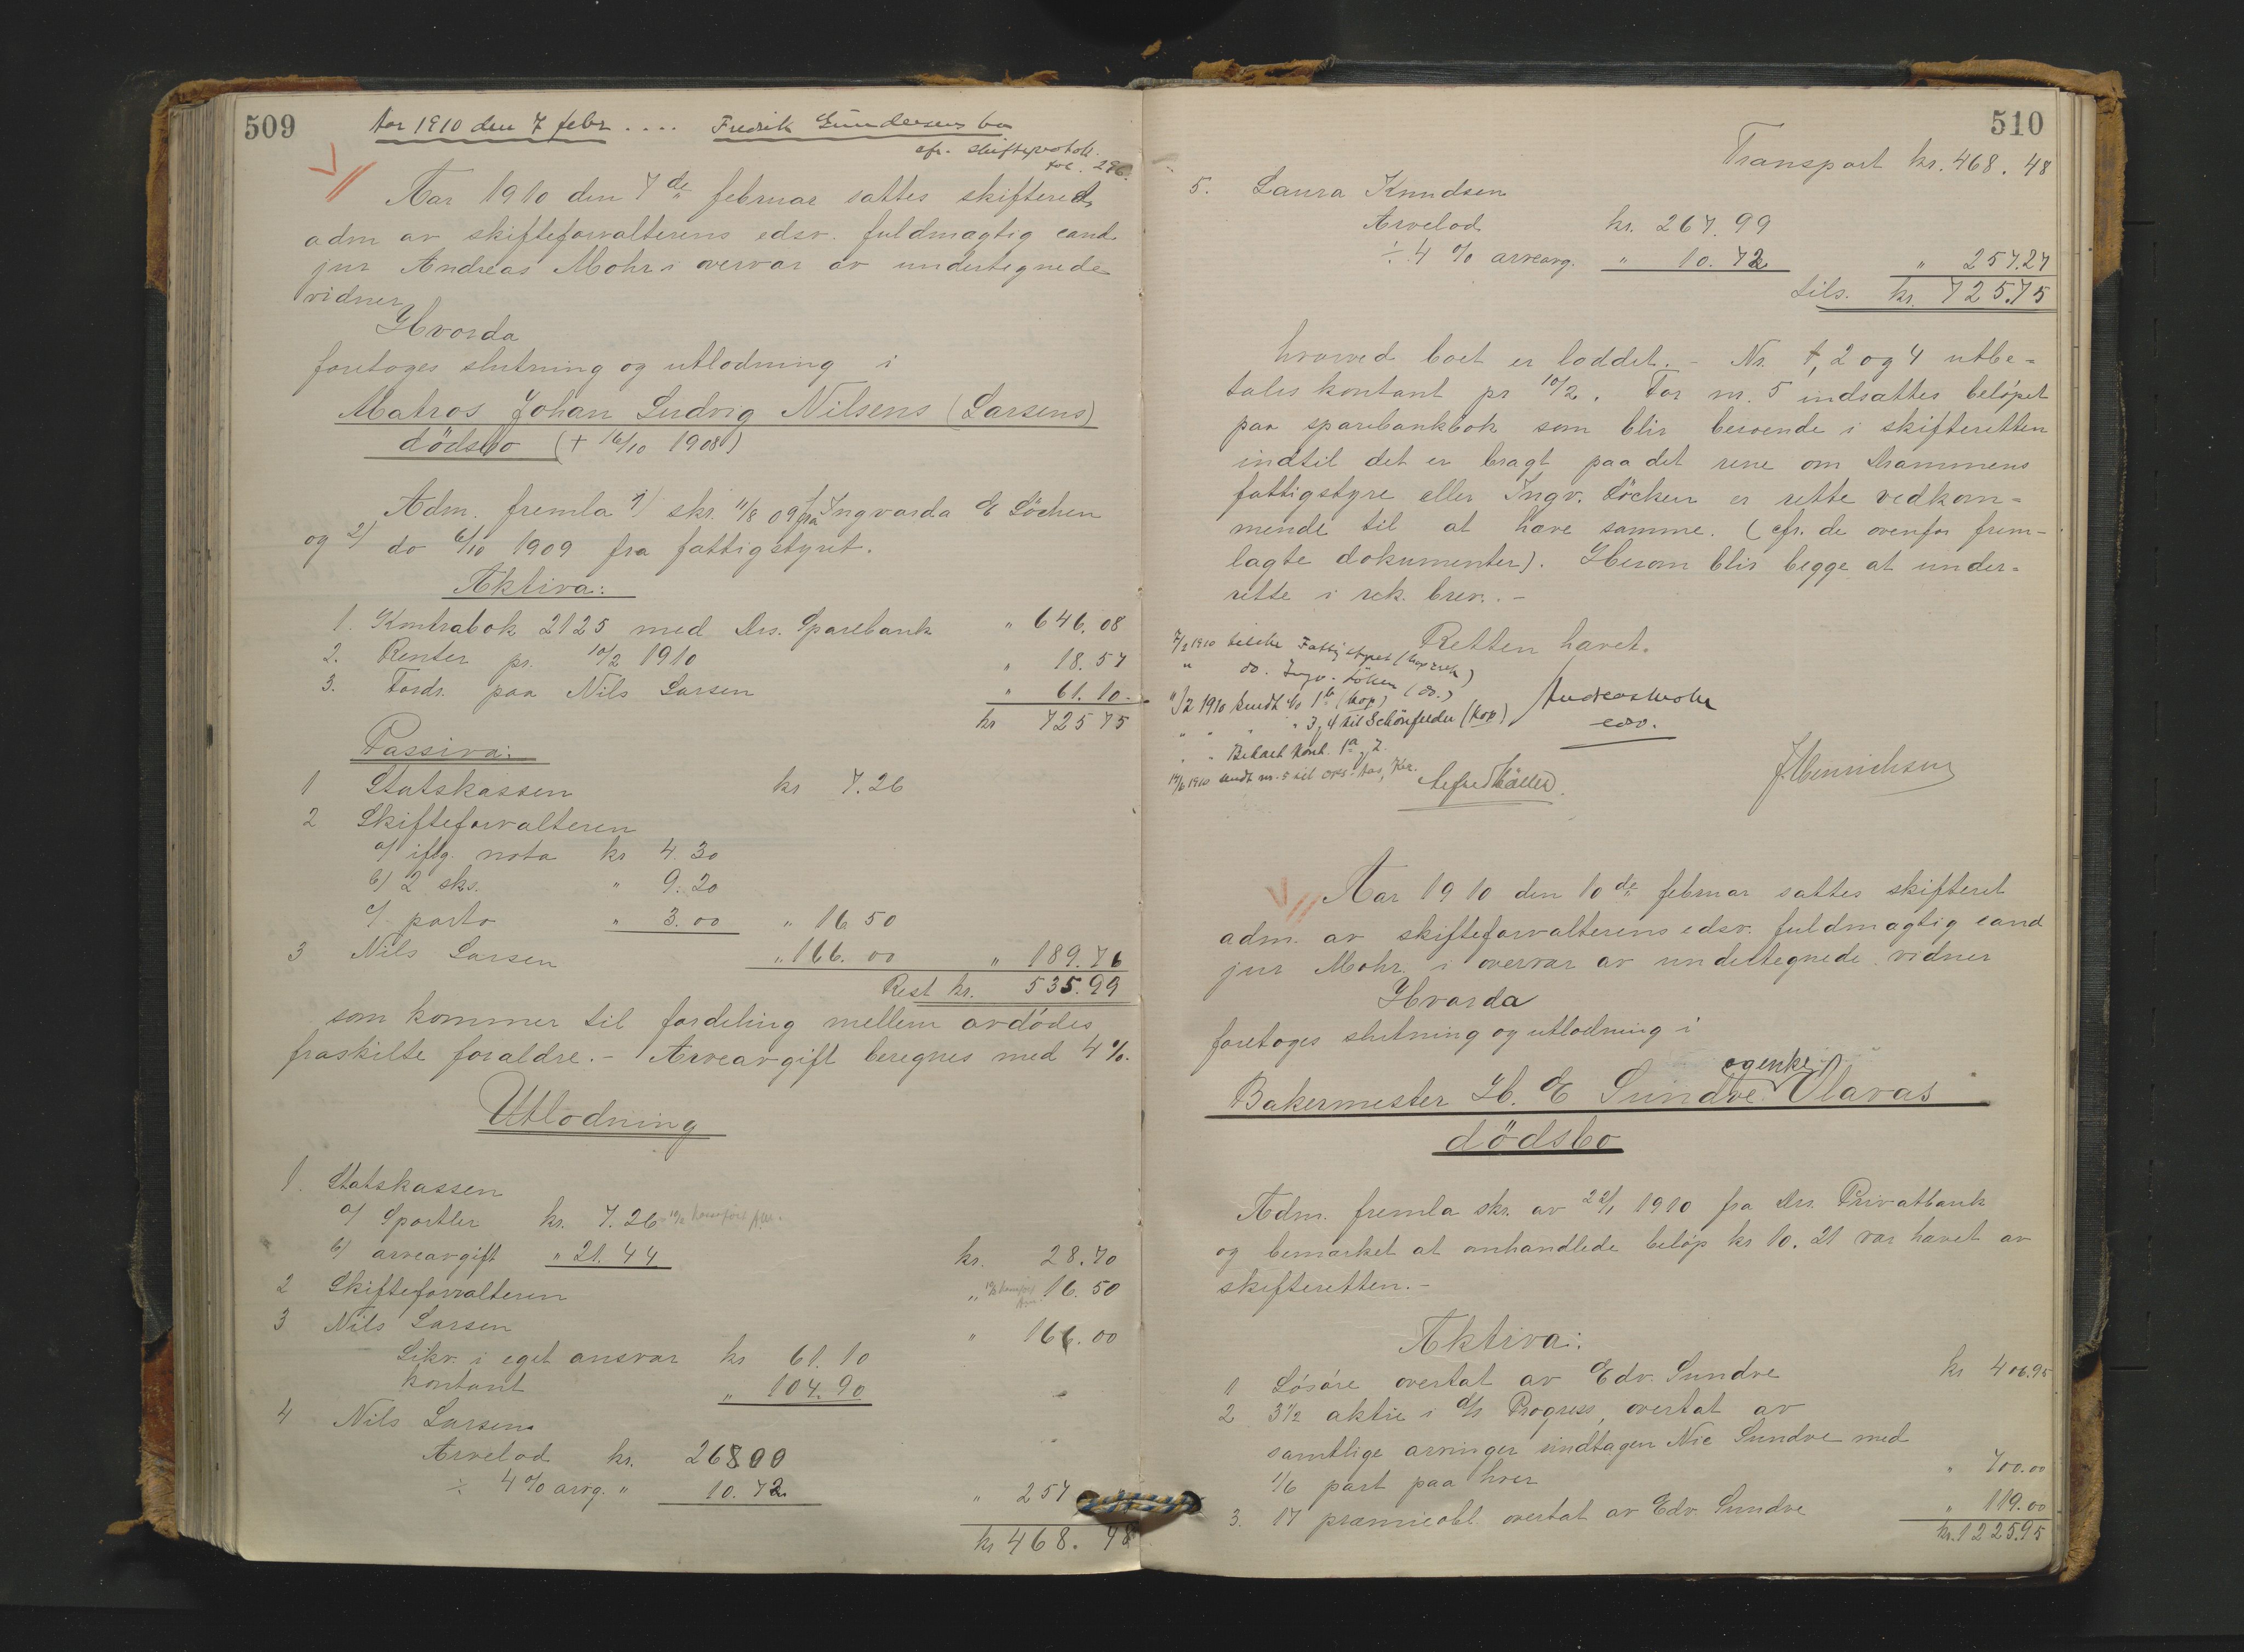 509
Aar 1910 den 7 febr .... Fredrik Gundersens bo
cfr. skifteprotok.
fol. 296.
Aar 1910 den 7de februar sattes skifteret,
adm av skifteforvalterens edsv. fuldmægtig cand.
jur Andreas Mohr i overvær av undertegnede
vidner
Hvorda
foretoges slutning og utlodning i
Matros Johan Ludvig Nilsens (Larsens)
dödsbo († 16/10 1908)
Adm. fremla 1) skr. 11/8 09 fra Ingvarda E Löchen
og 2) do 6/10 1909 fra fattigstyret.
Aktiva:
1. Kontrabok 2125 med Drs. Sparebank " 646.08
2. Renter pr. 10/2 1910 " 18.57
3. Fordr. paa Nils Larsen " 61.10.
kr 725 75
Passiva:
1 Statskassen kr 7.26
2 Skifteforvalteren
a/ iflg. nota kr 4.30
b) 2 sks. " 9.20
c/ porto " 3.00 " 16 50
3 Nils Larsen " 166.00 " 189.76
Rest kr. 535.99
som kommer til fordeling mellem avdödes
fraskilte forældre. - Arveavgift beregnes med 4%.
Utlodning
1. Statskassen
a/ Sportler kr. 7.26
b) arveavgift " 21.44 kr. 28.70
2 Skifteforvalteren " 16.50
3 Nils Larsen " 166.00
Likv. i eget ansvar kr 61.10
kontant " 104.90
4 Nils Larsen
Arvelod kr. 268.00
÷ 4% arvg. " 10.72 " 257
kr 468.48
510
Transport kr. 468.48
5. Laura Knudsen
Arvelod kr. 267.99
÷ 4% arveavg. " 10.72 " 257.27
tils. kr. 725.75
hvorved boet er loddet. - Nr. 1, 2 og 4 utbe=
tales kontant pr 10/2. For nr. 5 indsættes belöpet
paa sparebankbok som blir beroende i skifteretten
indtil det er bragt paa det rene om Drammens
fattigstyre eller Ingv. Löcken er rette vedkom=
mende til at hæve samme. (cfr. de ovenfor frem-
lagte dokumenter). Herom blir begge at under=
rette i rek. brev. -
Retten hævet.
7/2 1910 tilskr. Fattigstyret (kop rek)
" do. Ingv. Löken (do.)
11/2 1910 sendt No 1b (kop)
" " " 3, 4 til Schönfelder (kop)
" " Betalt kont. 1a, 2.
Andreas Mohr
edsv.
Alfred Möller.
J. Henrichsen
Aar 1910 den 10de februar sattes skifteret
adm. av skifteforvalterens edsv. fuldmægtig cand
jur Mohr i overvær av undertegnede vidner
Hvorda
foretoges slutning og utlodning i
og enke
Bakermester H. E Sundve Olavas
dödsbo
Adm. fremla skr. av 22/1 1910 fra Drs. Privatbank
og bemærket at omhandlede belöp kr 10.21 var hævet av
skifteretten. -
Aktiva:
1 Lösöre overtat av Edv. Sundve kr 406.95
2 3 1/2 aktie i A/S Progress, overtat av
samtlige arvinger undtagen Nic Sundve med
1/6 part paa hver " 700.00
3. 17 præmieobl. overtat av Edv. Sundve " 119.00
kr. 1225.95